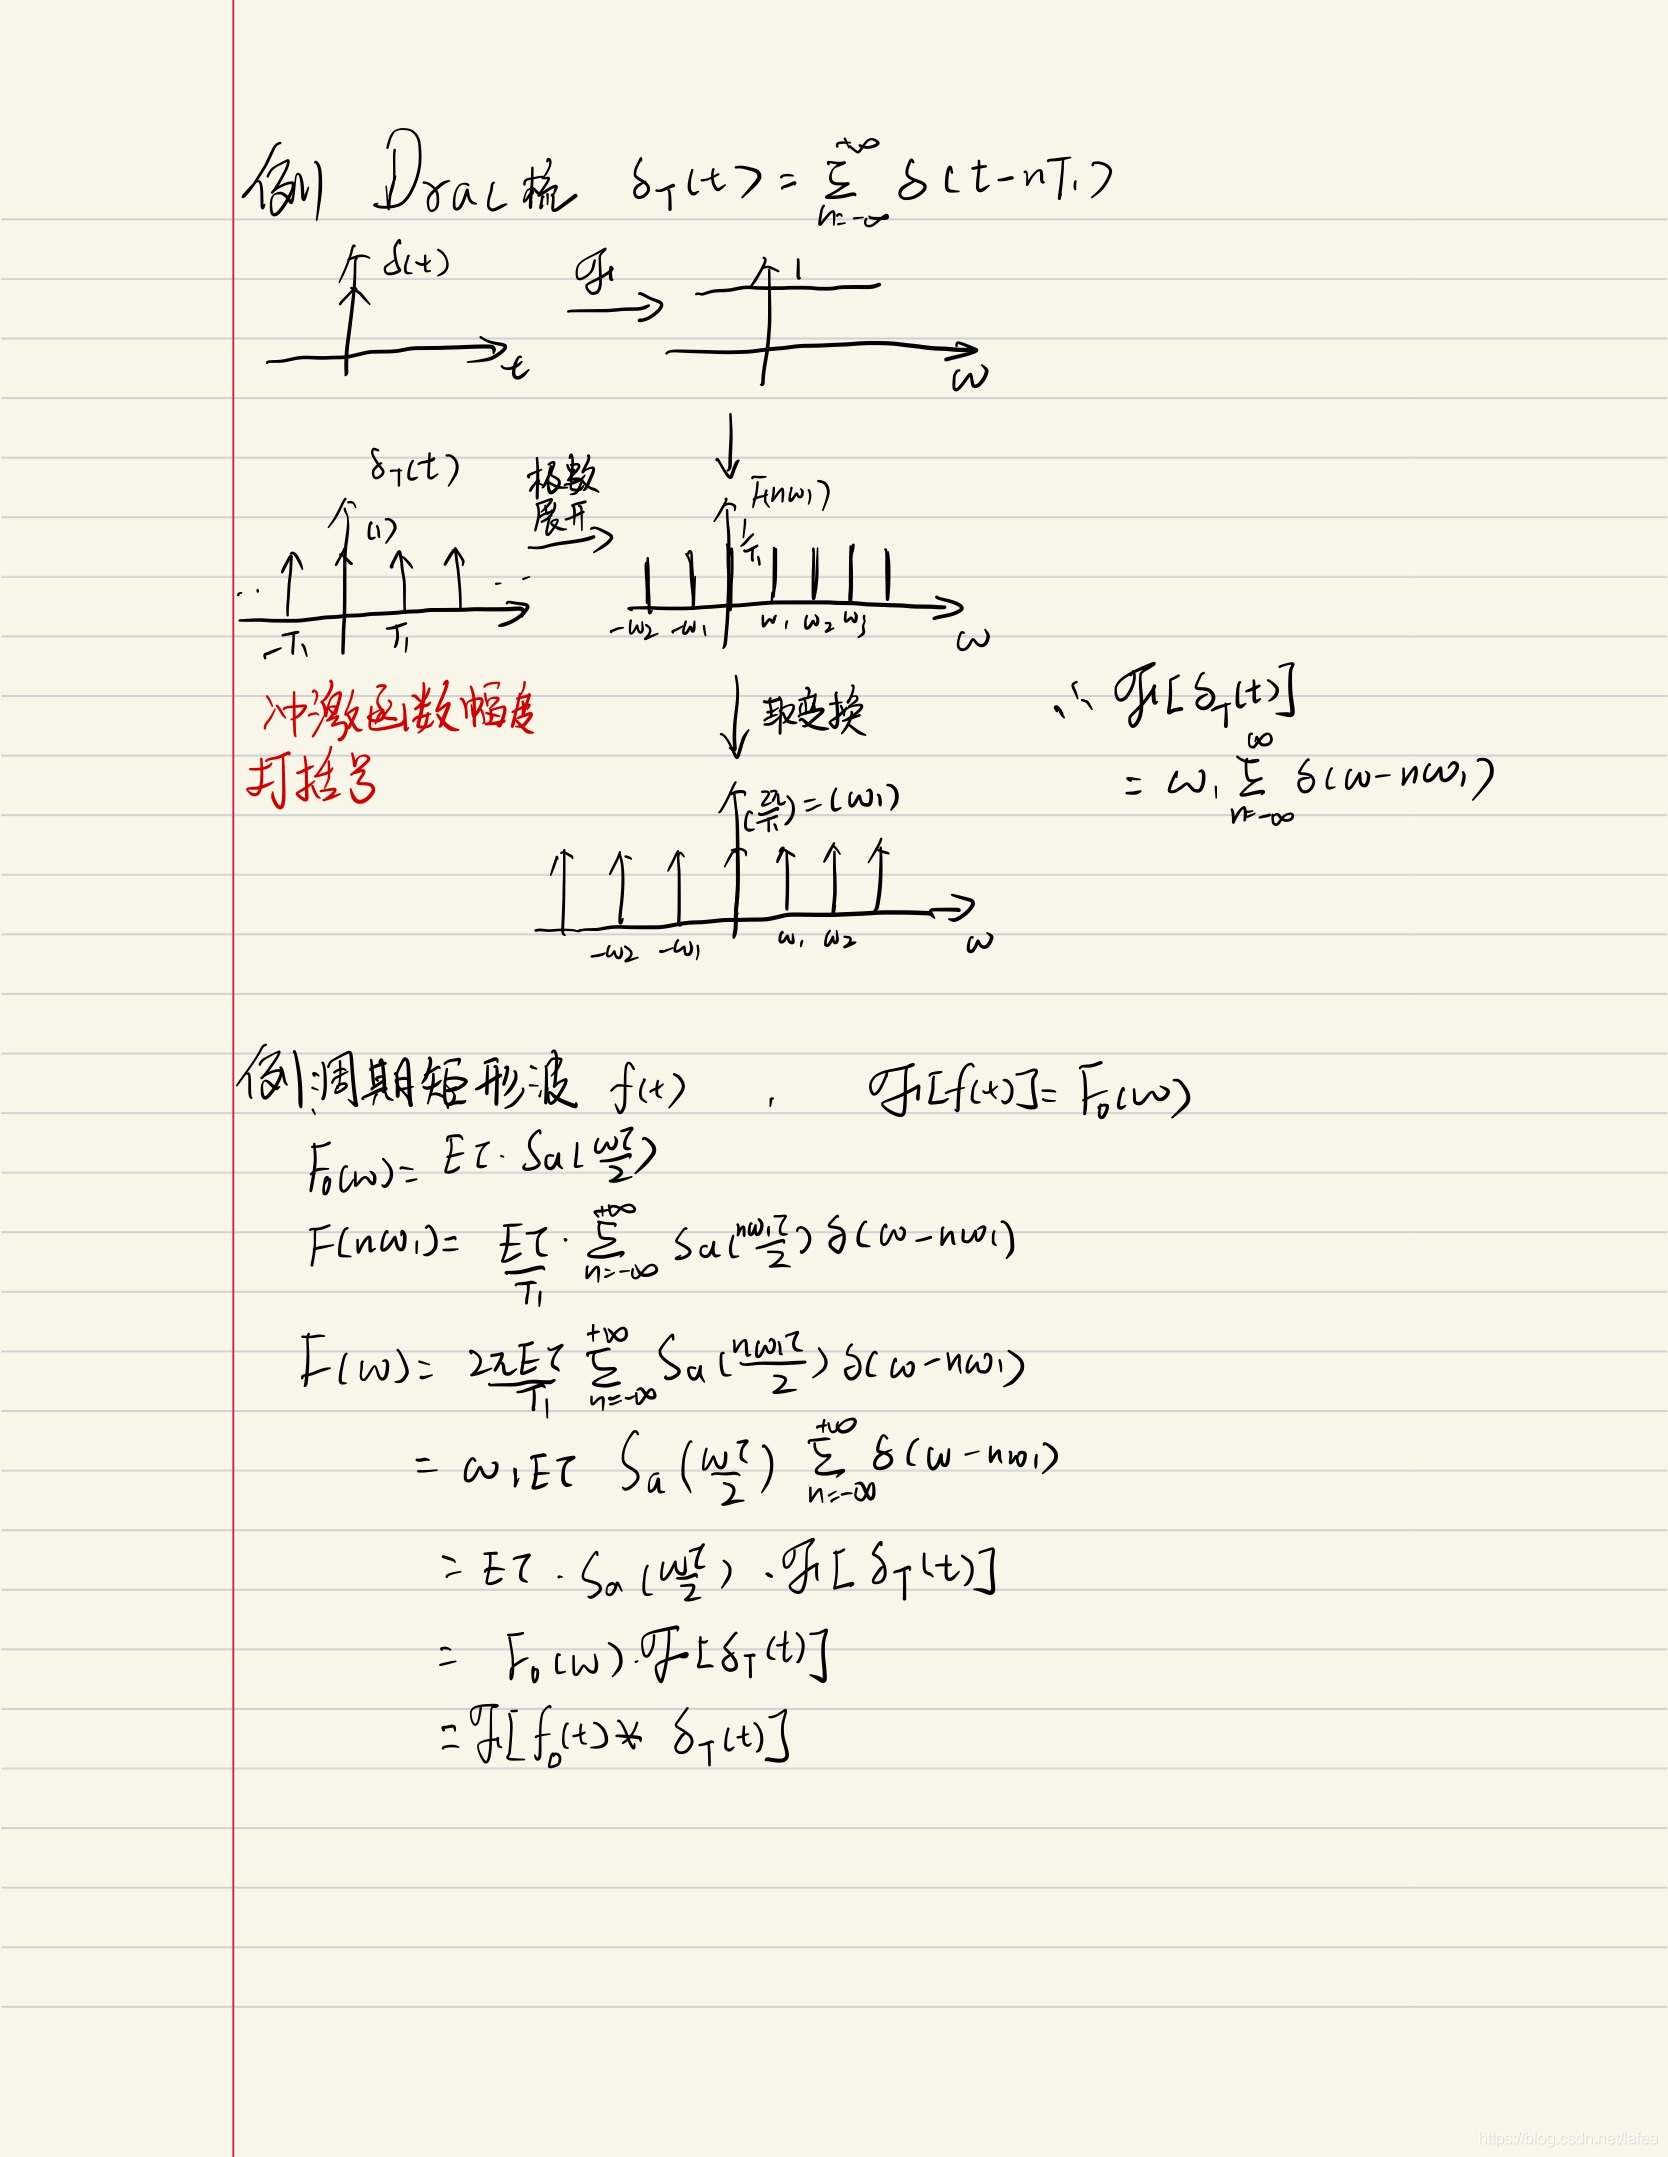 例 Dirac梳 δ_T(t) = Σ_{n=-∞}^{+∞} δ(t-nT₁)
δ(t) ℱ 1
t ω
δ_T(t) 级数展开 F(nω₁)
(1) 1/T₁
-T₁ T₁ -ω₂ -ω₁ ω₁ ω₂ ω₃ ω
冲激函数幅度 取变换 ∴ ℱ[δ_T(t)]
打括号 = ω₁ Σ_{n=-∞}^{∞} δ(ω-nω₁)
(2π/T₁) = (ω₁)
-ω₂ -ω₁ ω₁ ω₂ ω
例:周期矩形波 f(t) , ℱ[f(t)] = F₀(ω)
F₀(ω) = Eτ · Sa(ωτ/2)
F(nω₁) = Eτ/T₁ · Σ_{n=-∞}^{+∞} Sa(nω₁τ/2) δ(ω-nω₁)
F(ω) = 2πEτ/T₁ Σ_{n=-∞}^{+∞} Sa(nω₁τ/2) δ(ω-nω₁)
= ω₁Eτ Sa(ωτ/2) Σ_{n=-∞}^{+∞} δ(ω-nω₁)
= Eτ · Sa(ωτ/2) · ℱ[δ_T(t)]
= F₀(ω) · ℱ[δ_T(t)]
= ℱ[f₀(t) * δ_T(t)]
https://blog.csdn.net/lafea